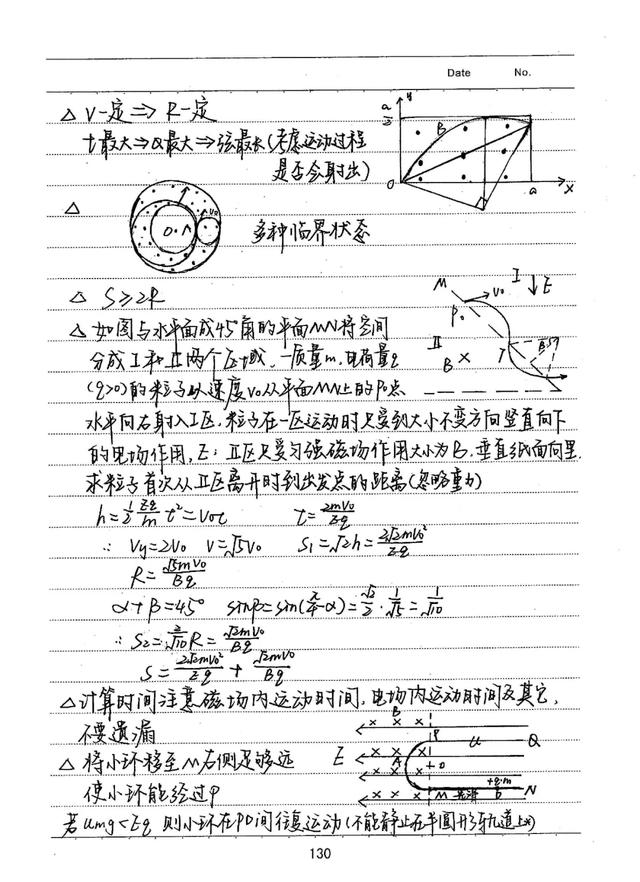 Date No.
△ V一定 ⇒ R一定
t最大⇒α最大⇒弦最长(考虑运动过程
是否会射出)
y
a/2
B
O a x
△ 多种临界状态
O R V0
△ S≥2R
△ 如图与水平面成45°角的平面MN将空间
分成Ⅰ和Ⅱ两个区域,一质量m,电荷量q
(q>0)的粒子以速度v0从平面MN上的P0点
水平向右射入Ⅰ区,粒子在一区运动时只受到大小不变方向竖直向下
的电场作用,E;Ⅱ区只受匀强磁场作用大小为B,垂直纸面向里.
求粒子首次从Ⅱ区离开时到出发点的距离(忽略重力)
M v0 Ⅰ E
P0
Ⅱ
B ×
h=1/2 Eq/m t²=v0t t=2mv0/Eq
∴ Vy=2v0 V=√5v0 S1=√2h=2√2mv0²/Eq
R=√5mv0/Bq
α+β=45° sinβ=sin(π/4-α)=√2/2·1/√5=1/√10
∴ S2=2/√10 R=√2mv0/Bq
S=2√2mv0²/Eq+√2mv0/Bq
△计算时间注意磁场内运动时间,电场内运动时间及其它,
不要遗漏
△ 将小环移至M右侧足够远
使小环能经过P
B
P u Q
E A O
+q·m
M D N
若umg<Eq 则小环在PD间往复运动(不能静止在半圆形轨道上)
130